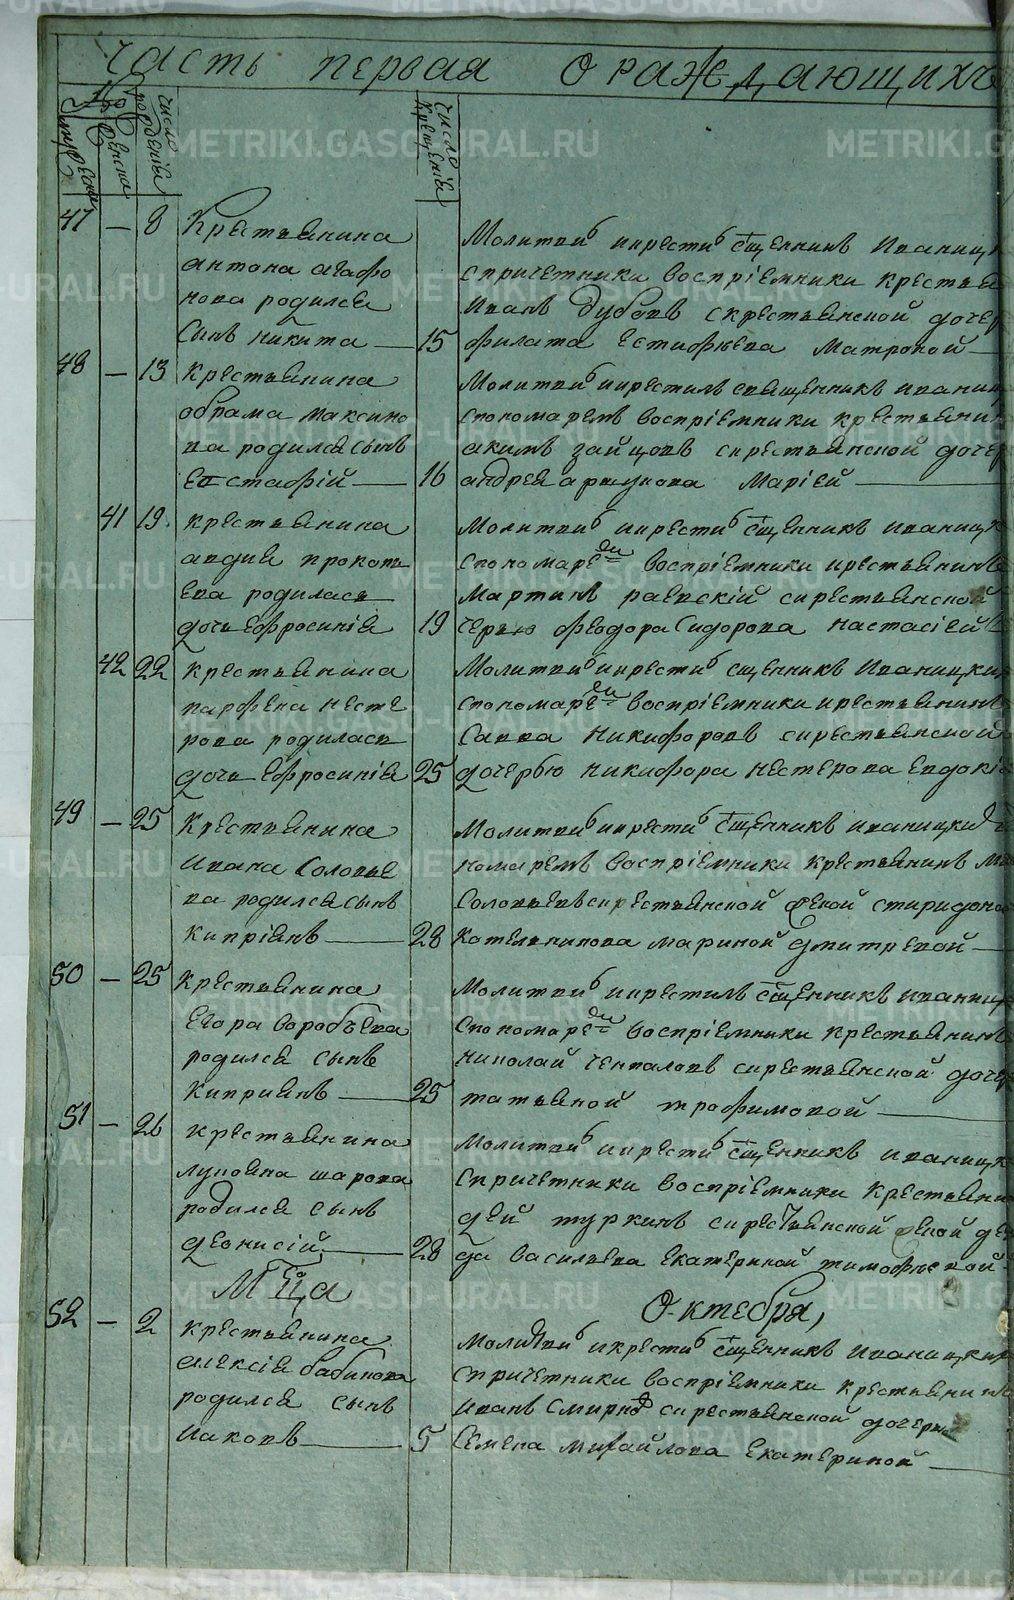 часть первая о раждающихъ
№
мужеска
женска
число рожденія
число крещенія
47 — 8 Крестьянина
антона агафо
нова родился
сынъ никита — 15
Молитви и крести сщенникъ Иваницк
спричетники воспріемники крестья
Иванъ Дубовъ скрестьянской дочер
филата Естифѣева Матроной —
48 — 13 крестьянина
абрама максимо
ва родился сынъ
Евстафій — 16
Молитви и крестилъ священникъ иваниц
спономаремъ воспріемники крестьянин
акимъ зайцовъ скрестьянской дочер
андрея аржунова Маріей —
41 19 крестьянина
авдия прокопь
Ева родилась
дочь Ефросинія 19
Молитви и крести сщенникъ иваницк
спономаремъ воспріемники крестьянинъ
Мартинъ раевскій скрестьянской
черью феодора Сидорова настасіей
42 22 крестьянина
парфена несте
рова родилась
дочь Ефросинія 25
Молитви и крести сщенникъ Иваницки
спономаремъ воспріемники крестьянинъ
Савва Никифоровъ скрестьянской
дочерью никифора нестерова Евдокі
49 — 25 Крестьянина
ивана Соловье
ва родился сынъ
Кипріянъ — 28
Молитви и крести сщенникъ иваницки
номаремъ воспріемники крестьянинъ
Соловьевъ скрестьянской женой спиридона
Котельникова мариной дмитревой —
50 — 25 крестьянина
Егора воробьева
родился сынъ
Киприянъ — 25
Молитви и крестилъ сщенникъ иваниц
спономаремъ воспріемники крестьянинъ
николай скрестьянской дочер
татьяной трофимовой —
51 — 26 крестьянина
лупояна шарова
родился сынъ
деонисій — 28
Молитви и крести сщенникъ иваницк
спричетники воспріемники крестьяни
дей туркинъ скрестьянской женой
да васильева Екатериной тимофѣевой
Мца Октебря,
52 — 2 крестьянина
алексія бабинова
родился сынъ
иаковъ — 5
молитви и крести сщенникъ иваницки
спричетники воспріемники крестьянинъ
иванъ Смирно скрестьянской дочерью
семена михайлова Екатериной —
METRIKI.GASO-URAL.RU